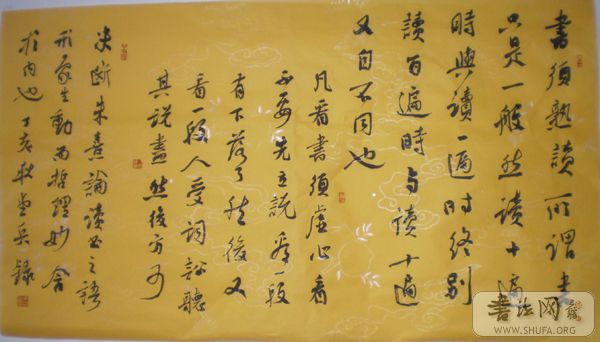 書須熟讀所謂書
只是一般然讀十遍
時與讀一遍時終别
讀百遍時与讀十遍
又自不同也
凡看書須虛心看
不要先立說看一段
有下落了然後又
看一段人受詞訟聽
其說盡然後方可
决断朱熹論讀书之語
形象生動而哲理妙含
於内也丁亥秋兵錄
书法网
WWW.SHUFA.ORG